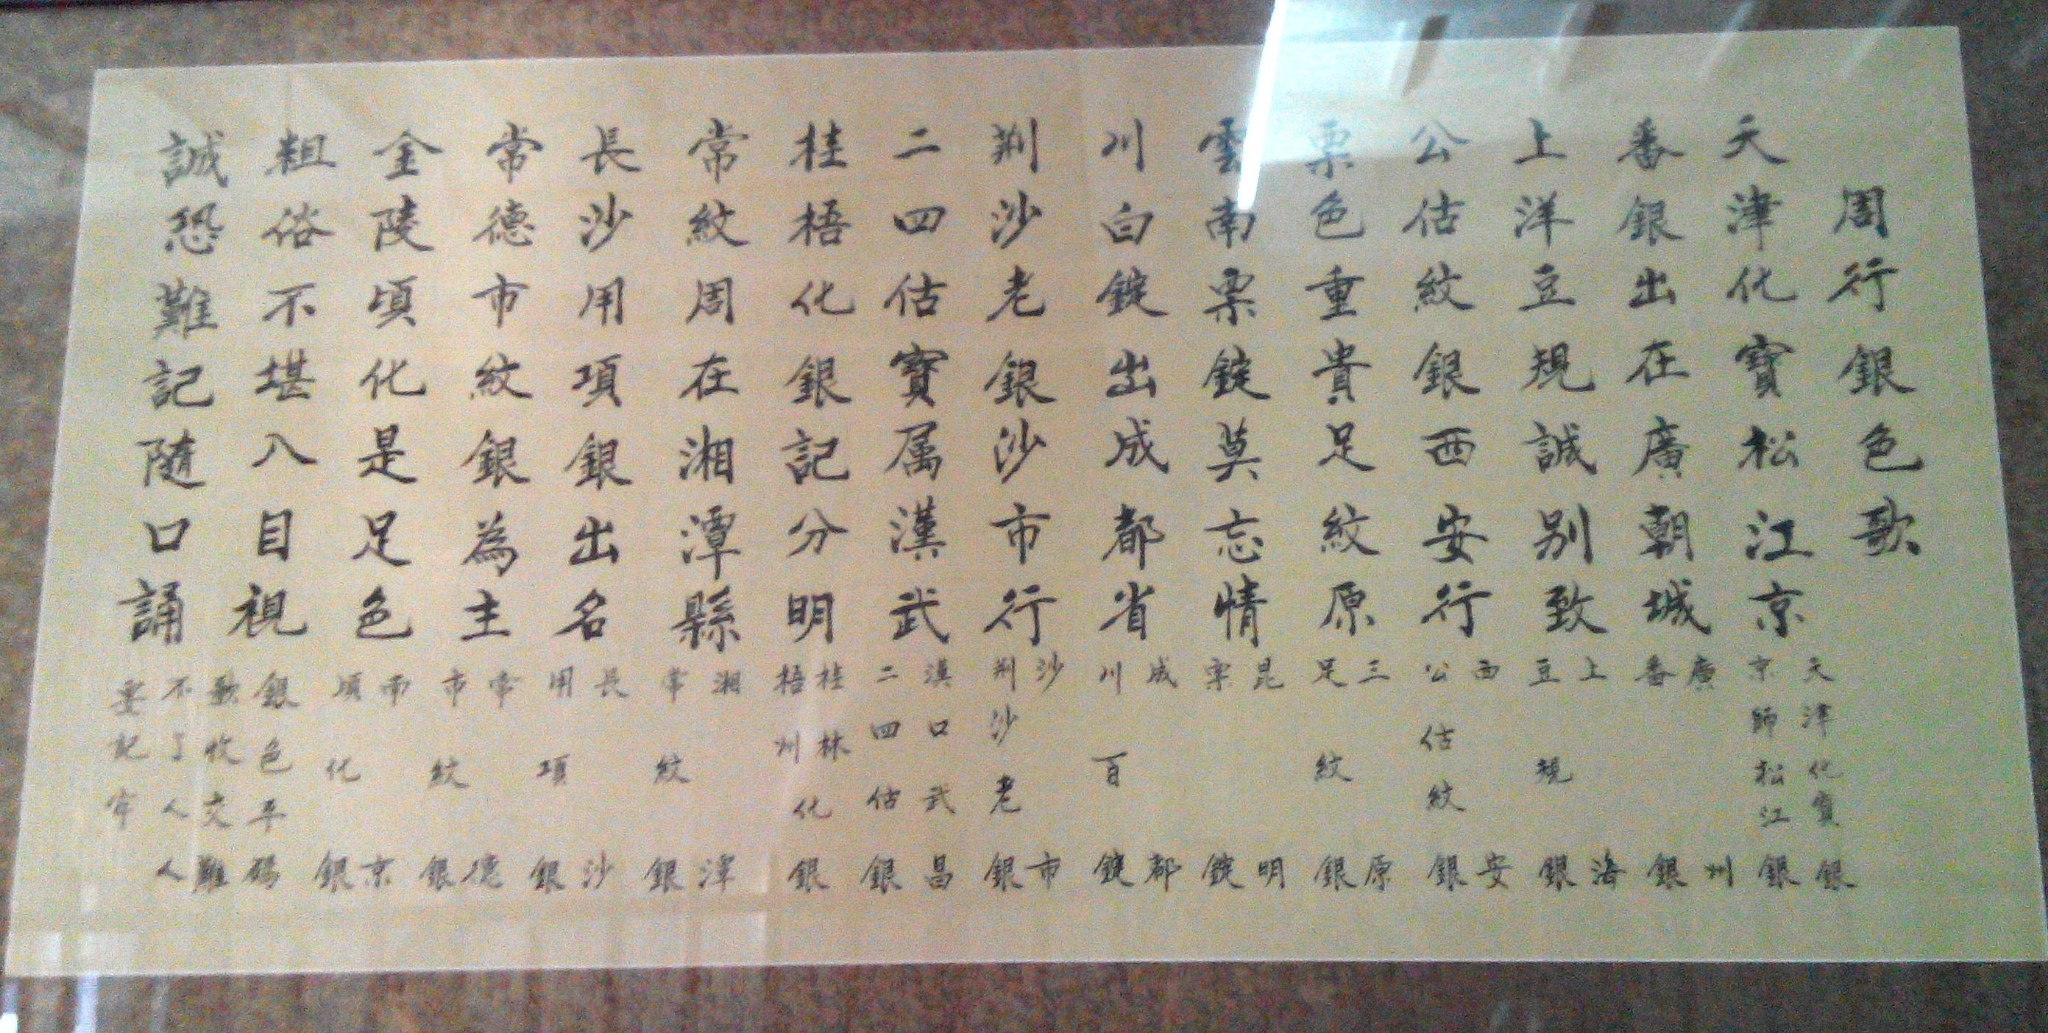 周行銀色歌
天津化寶松江京
番銀出在廣朝城
上洋豆規誠别致
公估紋銀西安行
票色重貴足紋原
雲南票錠莫忘情
川白錠出成都省
荆沙老銀沙市行
二四估寶属漢武
桂梧化銀記分明
常紋周在湘潭縣
長沙用項銀出名
常德市紋銀為主
金陵頃化是足色
粗俗不堪入目視
誠恐難記隨口誦
天津化寶銀
京師松江銀
廣州
番銀
上海
豆規銀
西安
公估紋銀
三原
足紋銀
昆明
票錠
成都
川百錠
沙市
荆沙老銀
漢口武昌
二四估銀
桂林
梧州化銀
湘潭
常紋銀
長沙
用項銀
常德
市紋銀
南京
頃化銀
銀色平碼
歌收交難
不了人人
要記牢